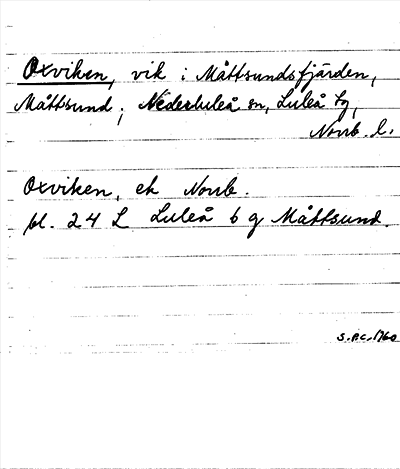 Oxviken, vik i Måttsundsfjärden,
Måttsund; Nederluleå sn, Luleå tg,
Norrb. l.
Oxviken, ek Norrb.
bl. 24 L Luleå 6 g Måttsund.
S.P.C. 1760